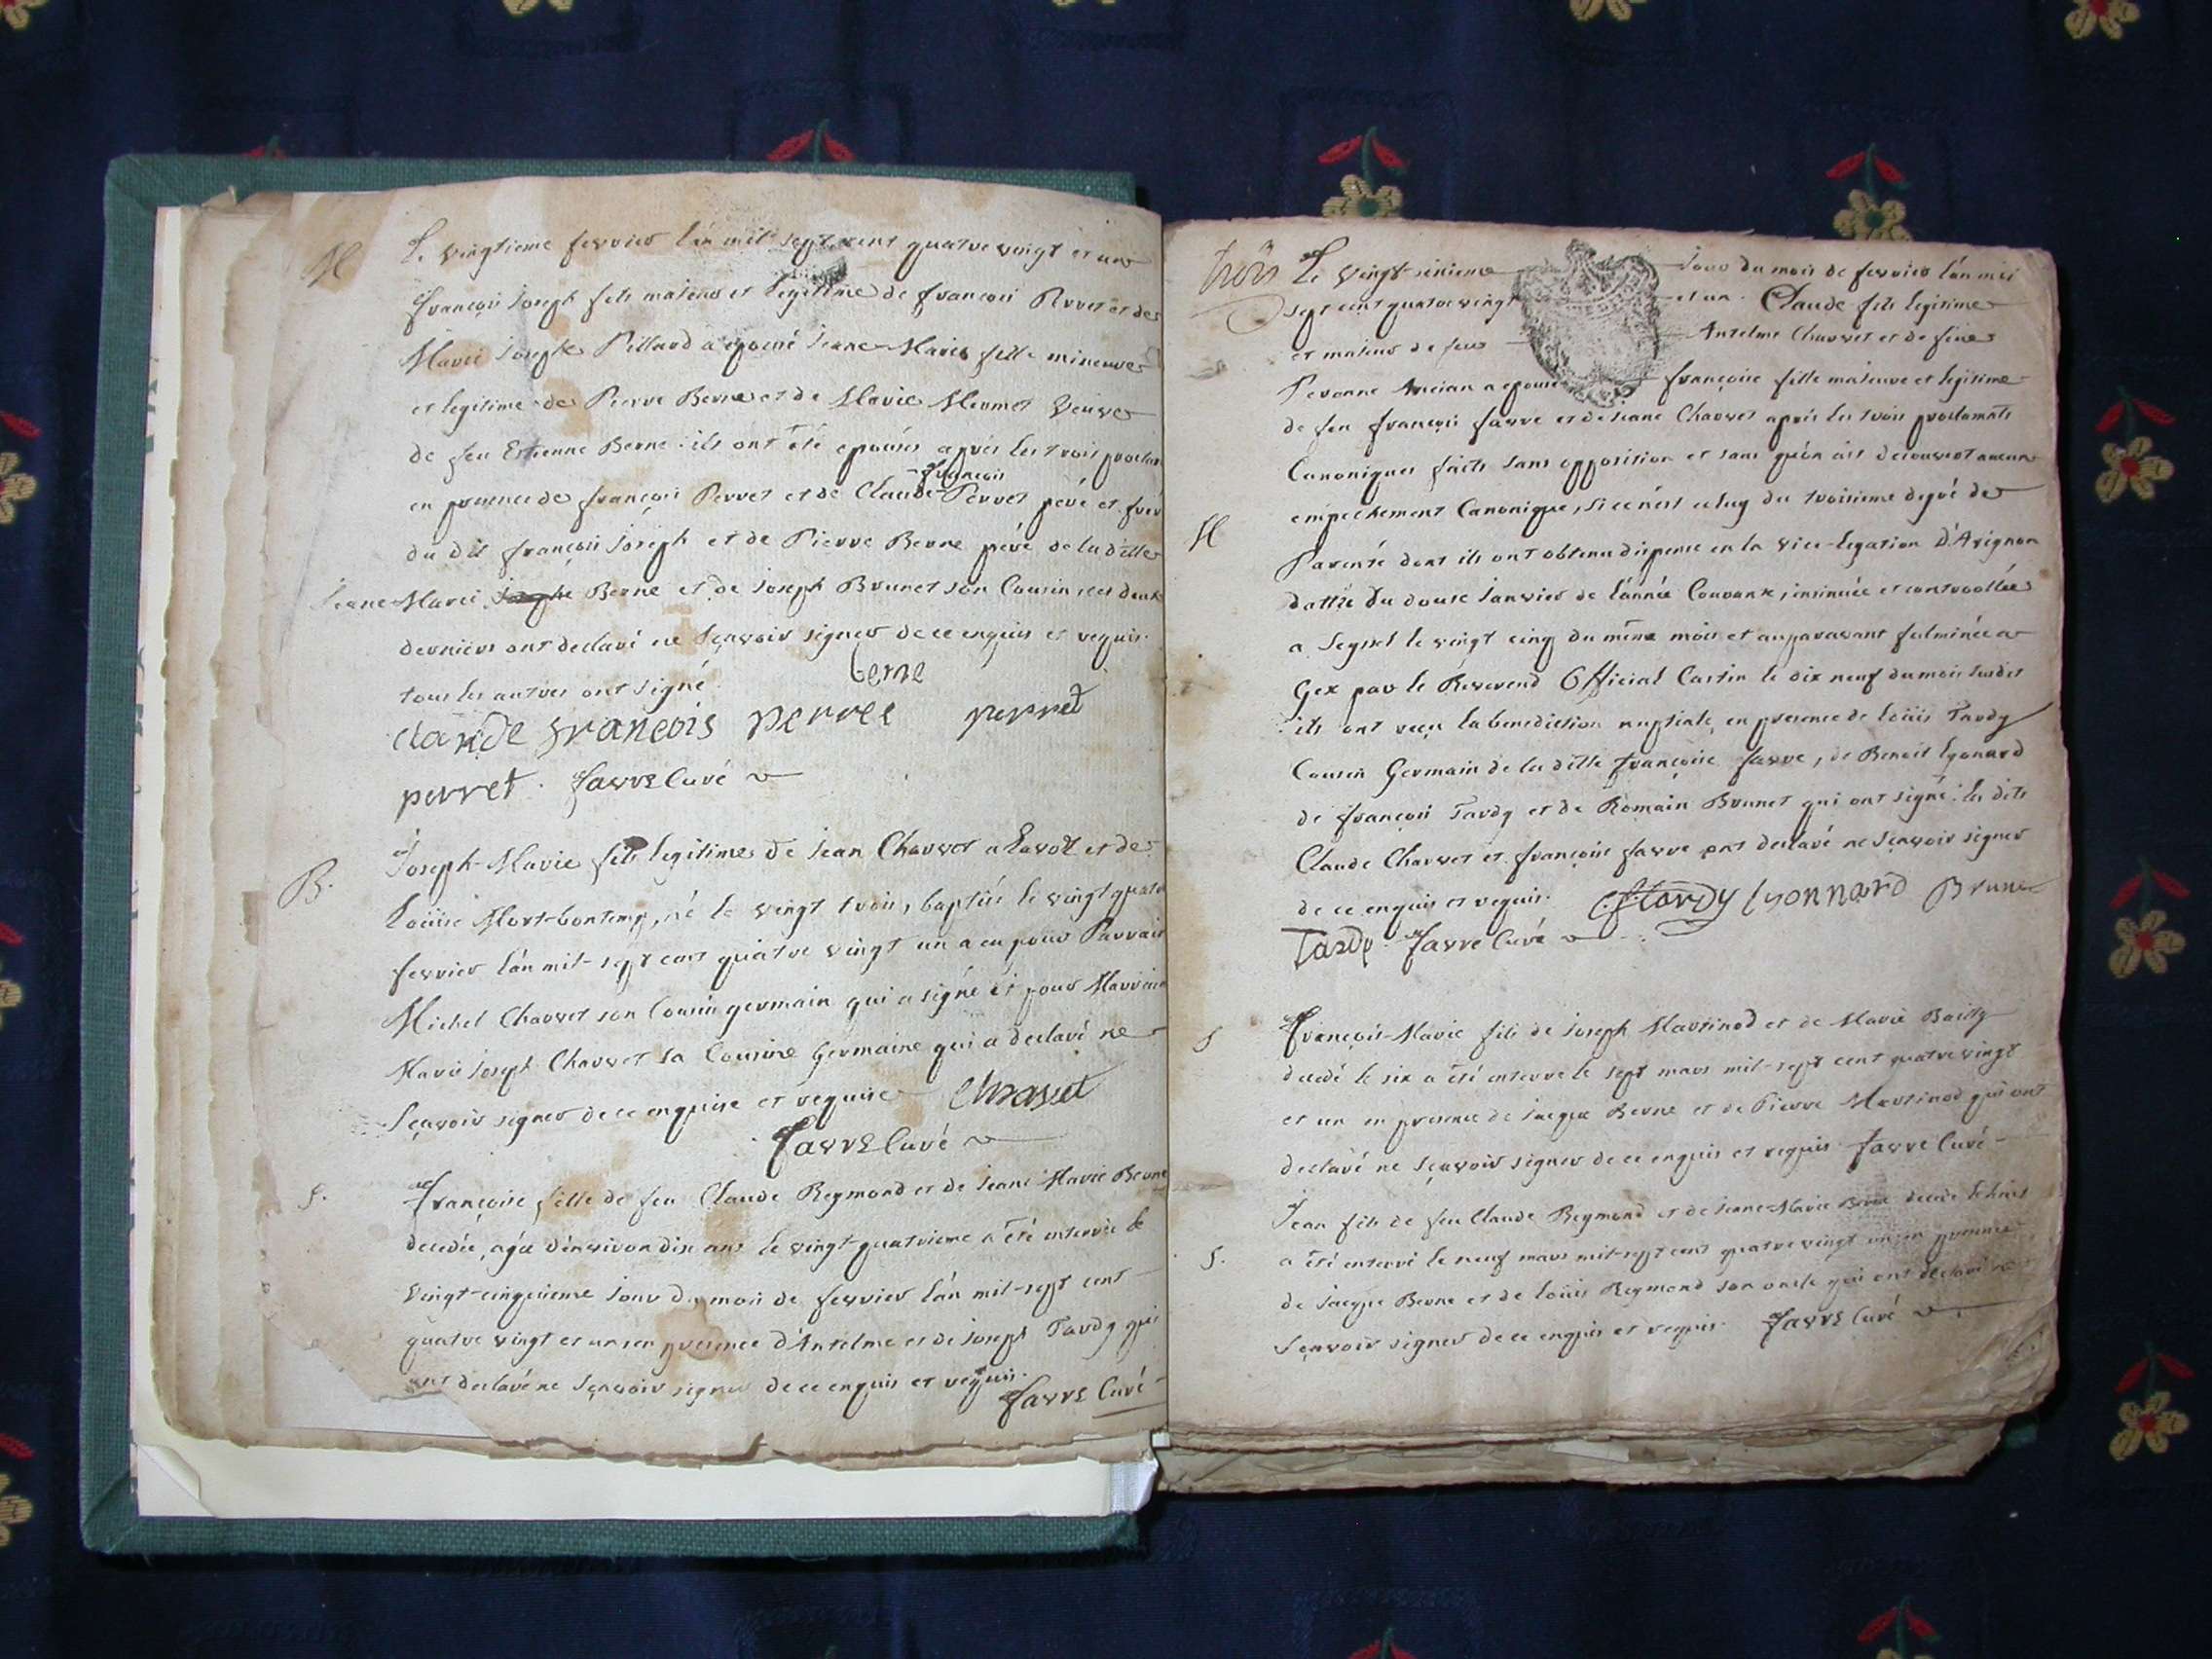 M
Le vingtieme fevrier l'an mil sept cent quatre vingt et un
françois Joseph fils majeur et legitime de françois Perret et de
Marie Josephe Pillard a epousé Jeanne-Marie fille mineure
et legitime de Pierre Berne et de Marie Mermet veuve
de feu Estienne Berne. ils ont été epousés après les trois proclam
françois
en presence de françois Perret et de Claude Perret pére et frér
du dit françois Joseph et de Pierre Berne pére de la ditte
Jeanne-Marie Josephe Berne et de Joseph Brunet son Cousin, ces deux
derniers ont declaré ne sçavoir signer de ce enquis et requis.
tous les autres ont signé. berne
claude françois perret perret
perret. favre Curé
B.
Joseph-Marie fils legitime de Jean Charvet a Lavoz et de
Loüise Mort-bontemp, né le vingt trois, baptisé le vingt quatre
fevrier l'an mil-sept cent quatre vingt un a eu pour Parrain
Michel Charvet son Cousin germain qui a signé et pour Marraine
Marie Joseph Charvet sa Cousine Germaine qui a declaré ne
sçavoir signer de ce enquise et requise Charvet
favre Curé
S.
françoise fille de feu Claude Reymond et de Jeane Marie Berne
decedée, agée d'environ dix ans le vingt quatrieme a été enterrée le
vingt-cinquieme jour du mois de fevrier l'an mil-sept cent
quatre vingt et un en presence d'Antelme et de Joseph Tardy qui
ont declaré ne sçavoir signer de ce enquis et requis.
favre Curé
trois Le vingt-sixieme jour du mois de fevrier l'an mil
sept cent quatre vingt et un. Claude fils legitime
et majeur de feu Antelme Charvet et de feue
Peronne Ancian a epousé françoise fille majeure et legitime
de feu françois favre et de Jeane Charvet après les trois proclamats
Canoniques faits sans opposition et sans qu'on ait decouvert aucun
empechement Canonique, si ce n'est celuy du troisieme degré de
M
Parenté dont ils ont obtenu dispense en la vice-legation D'Avignon
dattée du douze Janvier de l'année Courante, insinuée et controollée
a Seyssel le vingt cinq du même mois et auparavant fulminée a
Gex par le Reverend Official Castin le dix neuf du mois susdit
ils ont reçu la benediction nuptiale, en presence de loüis Tardy
Cousin Germain de la ditte françoise favre, de Benoit lyonard
de françois Tardy et de Romain Brunet qui ont signé. les dits
Claude Charvet et françoise favre ont declaré ne sçavoir signer
de ce enquis et requis. Tardy lyonnard Brunet
Tardy. favre Curé
S
françois-Marie fils de Joseph Martinod et de Marie Bailly
decedé le six a été enterré le sept mars mil-sept cent quatre vingt
et un en presence de Jacque Berne et de Pierre Martinod qui ont
declaré ne sçavoir signer de ce enquis et requis favre Curé
S.
Jean fils de feu Claude Reymond et de Jeane-Marie Berne decedé le huit
a été enterré le neuf mars mil-sept cent quatre vingt un en presence
de Jacque Berne et de loüis Reymond son oncle qui ont declaré ne
sçavoir signer de ce enquis et requis. favre Curé